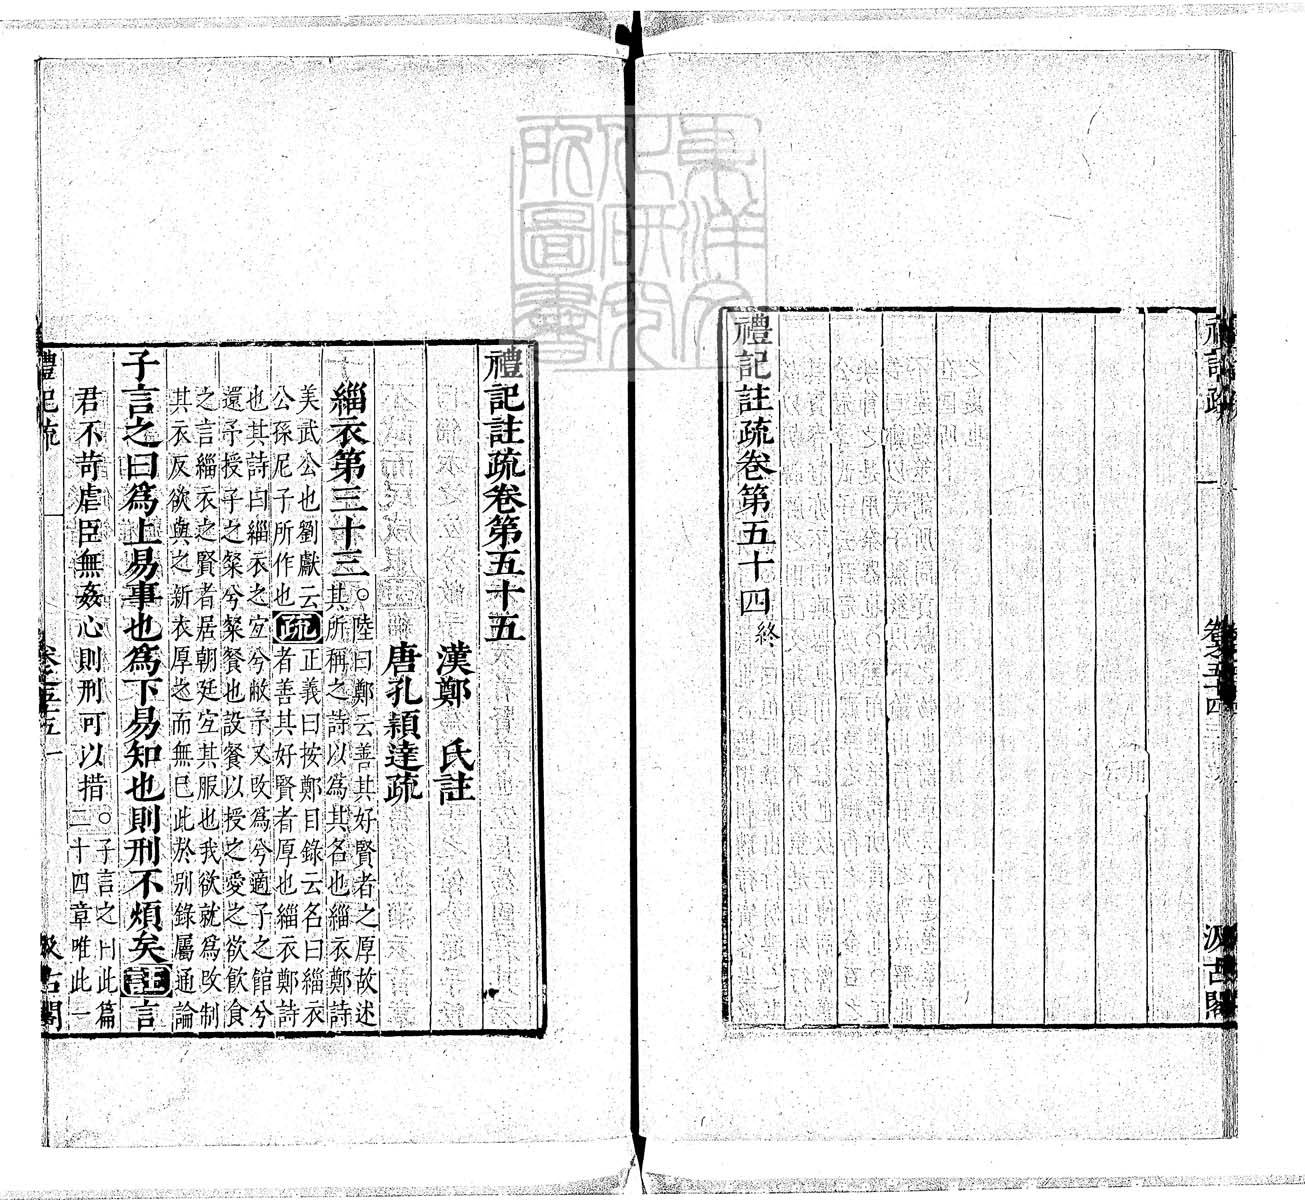 禮記疏
卷之五十四
汲古閣
禮記註疏卷第五十四終
東洋文
化研究
所圖書
禮記註疏卷第五十五
漢鄭 氏註
唐孔穎達疏
緇衣第三十三○陸曰鄭云善其好賢者之厚故述
其所稱之詩以為其名也緇衣鄭詩
美武公也劉獻云
公孫尼子所作也疏正義曰按鄭目錄云名曰緇衣
者善其好賢者厚也緇衣鄭詩
也其詩曰緇衣之宜兮敝予又攺為兮適子之館兮
還予授子之粲兮粲餐也設餐以授之愛之欲飲食
之言緇衣之賢者居朝廷宜其服也我欲就為攺制
其衣反欲與之新衣厚之而無已此於別錄屬通論
子言之曰為上易事也為下易知也則刑不煩矣註言
君不苛虐臣無姦心則刑可以措○子言之曰此篇
二十四章唯此一
禮記疏
卷之五十五
一
汲古閣